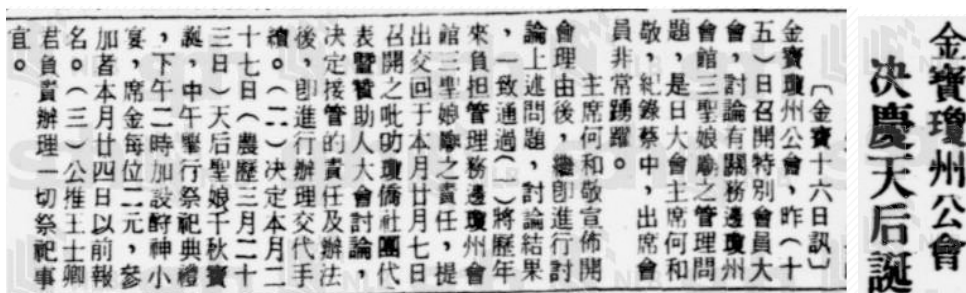 金寶瓊州公會
决慶天后誕
〔金寶十六日訊〕
金寶瓊州公會，昨（十
五）日召開特別會員大
會，討論有關務邊瓊州
會館三聖娘廟之管理問
題，是日大會主席何和
敬，紀錄蔡中，出席會
員非常踴躍。
主席何和敬宣佈開
會理由後，繼卽進行討
論上述問題，討論結果
，一致通過（一）將歷年
來負担管理務邊瓊州會
館三聖娘廟之責任，提
出交回于本月廿月七日
召開之吡叻瓊僑社團代
表暨贊助人大會討論，
决定接管的責任及辦法
後，卽進行辦理交代手
續。（二）决定本月二
十七日（農歷三月二十
三日）天后聖娘千秋寶
誕，中午舉行祭祀典禮
，下午二時加設酧神小
宴，席金每位二元，參
加者本月廿四日以前報
名。（三）公推王士卿
君負責辦理一切祭祀事
宜。